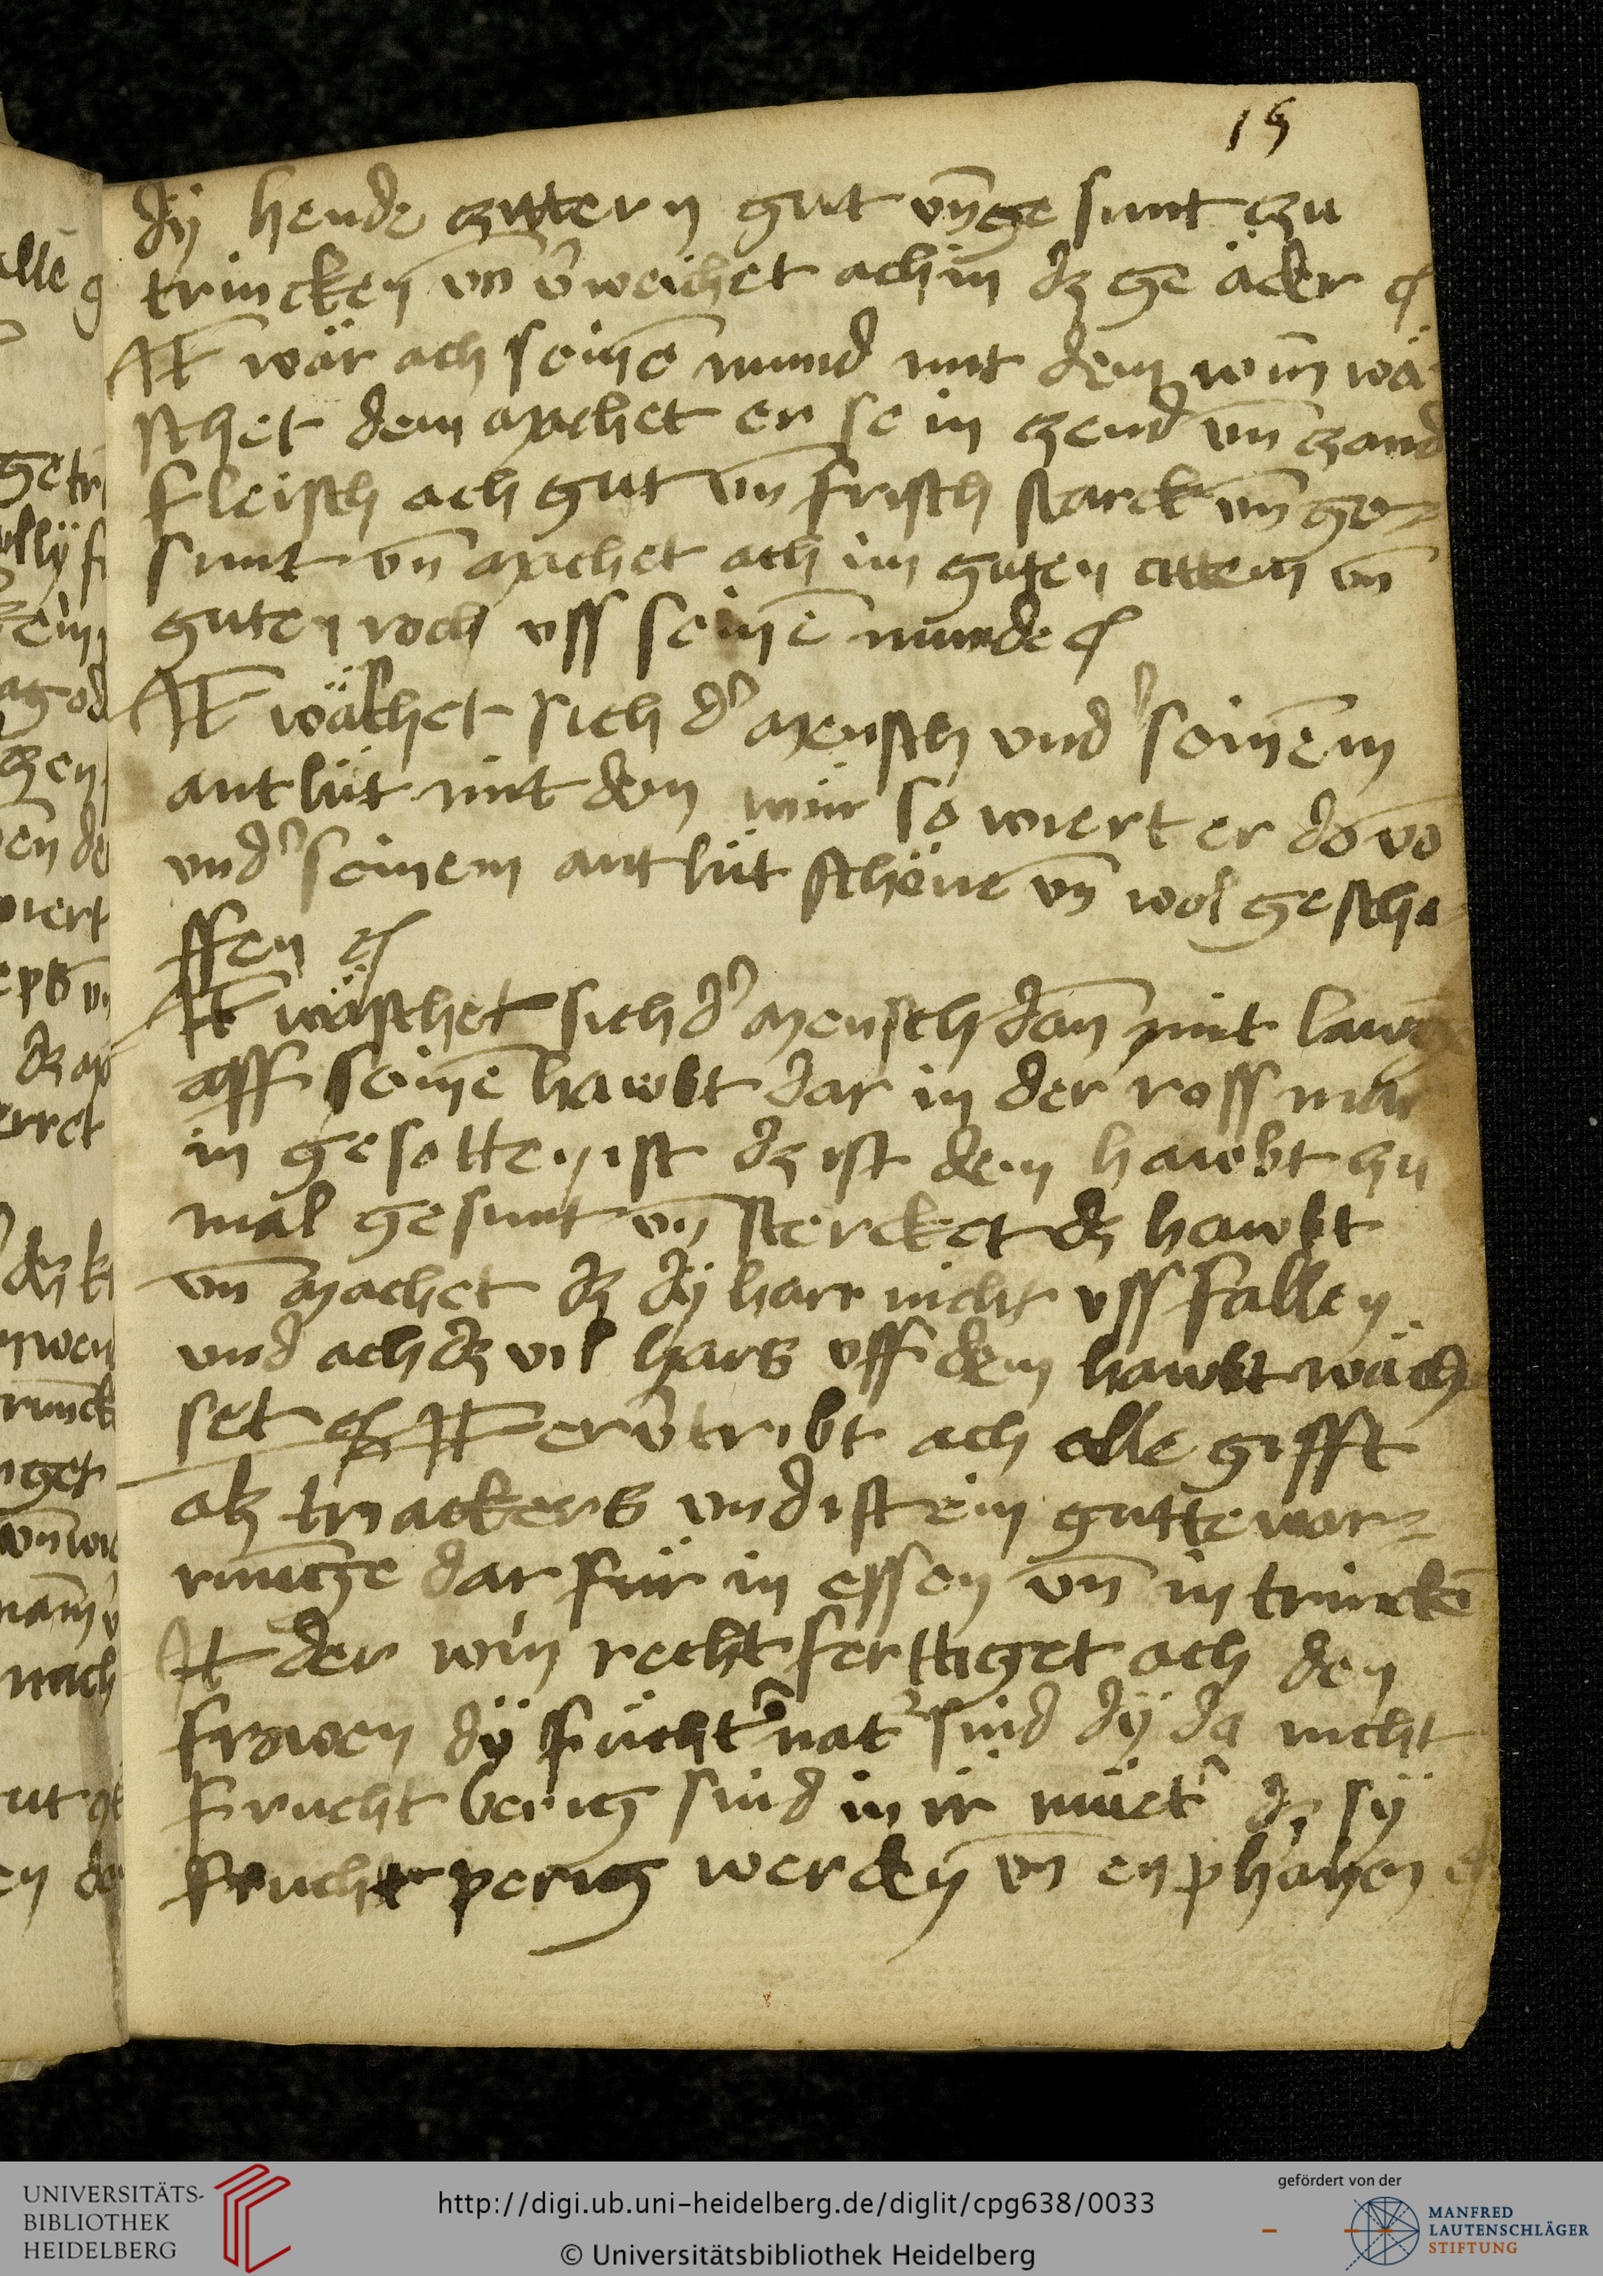 15
dÿ hende zittern gut vn̄ ge sunt zu
trincken vn̄ v̾weichet ach im dz ge äder
It̄ wär ach seinē mund mit dem win wä
schet dem machet er se in zend vn̄ zand
fleisch ach gut vn̄ frisch starck vn̄ ge-
sunt vn̄ machet ach im guten attem vn̄
guten roch vss seinē munde
It̄ wäschet sich d̾ mensch vnd̾ seinem
antlüt mit dem win so wiert er do vō
vnd̾ seinem antlüt schöne vn̄ wol gescha
ffen
It̄ wäschet sich d̾ mensch dan̄ mit laug
uff seinē hawbt dar in der ross mar
in gesotten ist dz ist dem hawbt zu
mal gesunt vn̄ stercket dz hawbt
vn̄ machet dz dÿ harr nicht vss fallen
und ach dz vil hars vff dem hawbt wäch
set It̄ er v̾tribt ach alle gifft
alz trackers vnd ist ein gutte war-
nuncze dar für in essen vn̄ in trinckē
It der win recht ferttiget ach den
frowen dÿ fücht̾ nat̾ sind dÿ da nicht
frucht berig sind in ir müet̾ dz sÿ
frucht perig werden vn̄ enphahen
alle g
wiert
nach
UNIVERSITÄTS-
BIBLIOTHEK
HEIDELBERG
http://digi.ub.uni-heidelberg.de/diglit/cpg638/0033
© Universitätsbibliothek Heidelberg
gefördert von der
MANFRED
LAUTENSCHLÄGER
STIFTUNG